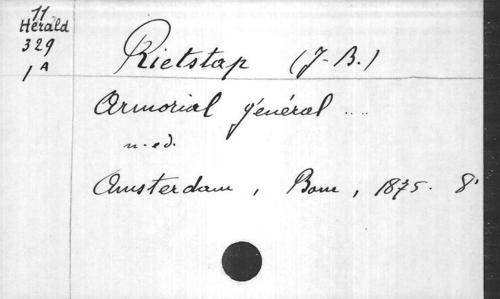 11
Herald
329
1 A
Rietstap (J-B.)
Armorial général ....
n. ed.
Amsterdam, Bom, 1875. 8°